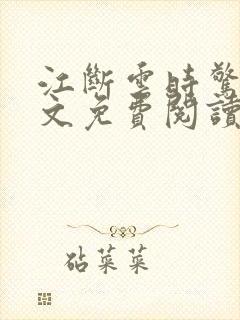 江斷雲時驚
文免費閱讀
砧菜菜